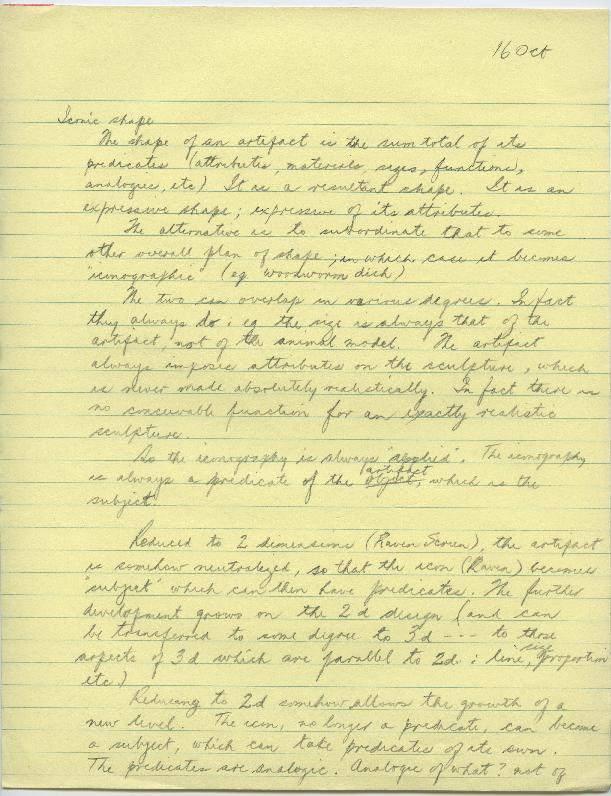 16 Oct
Iconic shape
The shape of an artefact is the sum total of its
predicates (attributes, materials, sizes, functions,
analogies, etc) It is a resultant shape. It is an
expressive shape; expressive of its attributes.
The alternative is to subordinate that to some
other overall plan of shape; in which case it becomes
"iconographic" (eg woodworm dish)
The two can overlap in various degrees. In fact
they always do: eg the size is always that of the
artifact, not of the animal model. The artifact
always imposes attributes on the sculpture, which
is never made absolutely realistically. In fact there is
no conceivable function for an exactly realistic
sculpture.
So the iconography is always "applied". The iconography
is always a predicate of the object artifact, which is the
subject.
Reduced to 2 dimensions (Raven Screen), the artifact
is somehow neutralized, so that the icon (Raven) becomes
"subject" which can then have predicates. The further
development grows on the 2d design (and can
be transferred to some degree to 3d --- to those
aspects of 3d which are parallel to 2d: line, size, proportion
etc.)
Reducing to 2d somehow allows the growth of a
new level. The icon, no longer a predicate, can become
a subject, which can take predicates of its own.
The predicates are analogic. Analogic of what? not of